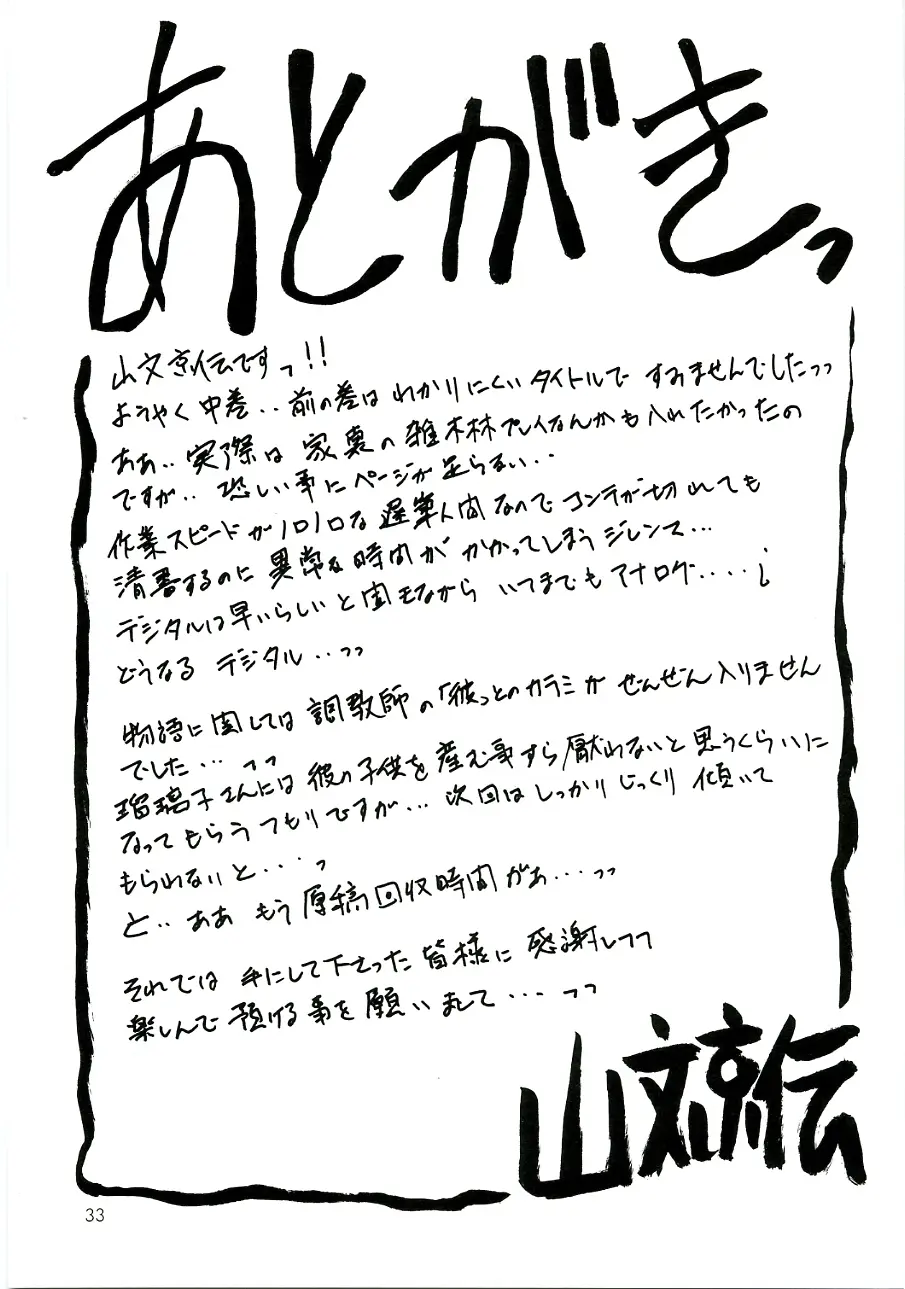 あとがきっ
山文京伝ですっ!!
ようやく中巻‥前の巻はわかりにくいタイトルですみませんでしたっっ
ああ‥実際は家裏の雑木林プレイなんかも入れたかったの
ですが‥恐しい事にページが足らない‥
作業スピードがノロノロな遅筆人間なのでコンテが切れても
清書するのに異常な時間がかかってしまうジレンマ…
デジタルは早いらしいと聞きながらいつまでもアナログ‥‥¡
どうなるデジタル‥っっ
物語に関しては調教師の「彼」とのカラミがぜんぜん入りません
でした…っっ
瑠璃子さんには彼の子供を産む事すら厭わないと思うくらいに
なってもらうつもりですが…次回はしっかりじっくり傾いて
もらわないと…っ
と‥ああもう原稿回収時間がぁ…っっ
それでは手にして下さった皆様に感謝しつつ
楽しんで頂ける事を願いまして…っっ
山文京伝
33